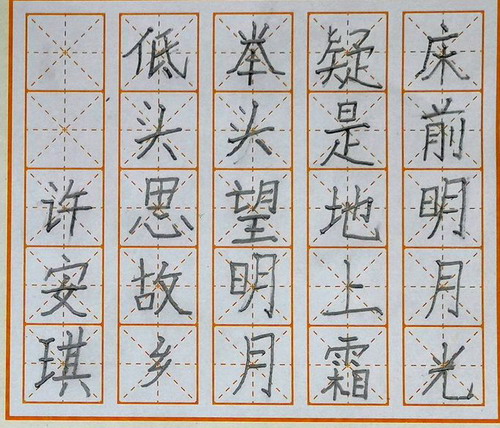 床前明月光
疑是地上霜
举头望明月
低头思故乡
许安琪